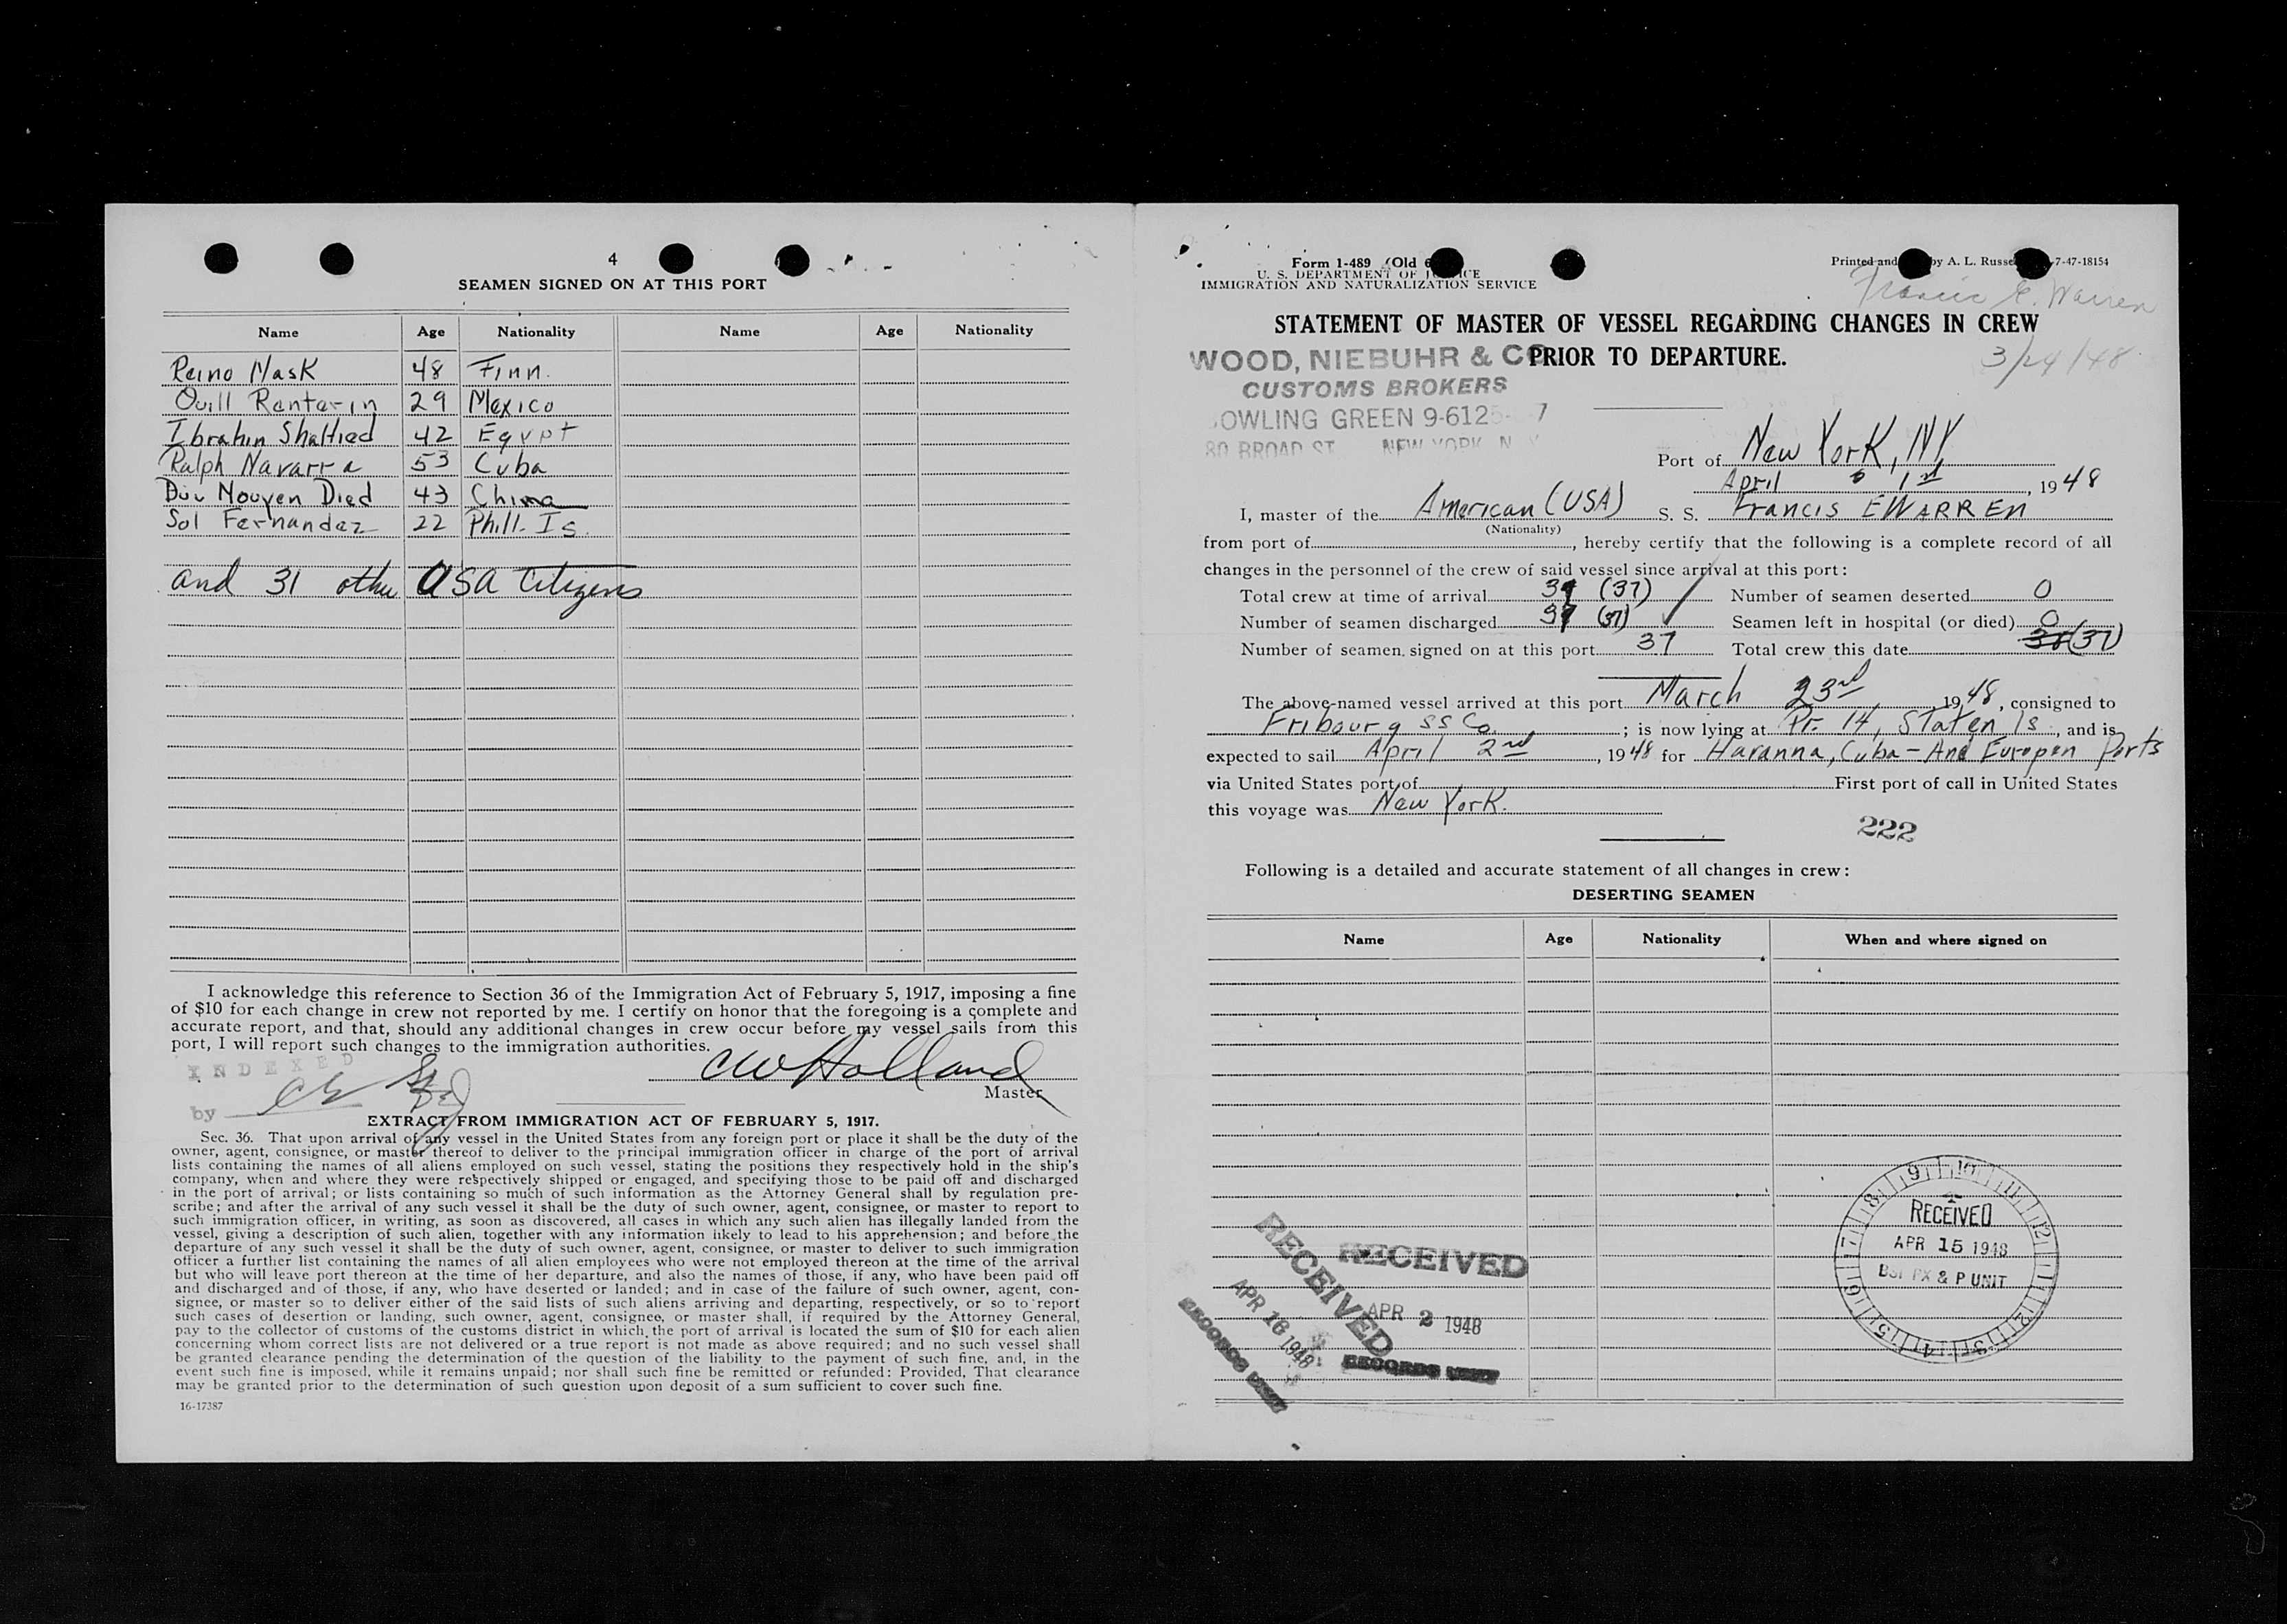 4
SEAMEN SIGNED ON AT THIS PORT
Name Age Nationality Name Age Nationality
Reino Mask 48 Finn.
Quill Renterin 29 Mexico
Ibrahin Shaltied 42 Egypt
Ralph Navarra 53 Cuba
Nouyen Died 43 China
Sol Fernandez 22 Phill. Is.
and 31 other USA Citizens
I acknowledge this reference to Section 36 of the Immigration Act of February 5, 1917, imposing a fine
of $10 for each change in crew not reported by me. I certify on honor that the foregoing is a complete and
accurate report, and that, should any additional changes in crew occur before my vessel sails from this
port, I will report such changes to the immigration authorities.
INDEXED
CW Holland
Master
by
EXTRACT FROM IMMIGRATION ACT OF FEBRUARY 5, 1917.
Sec. 36. That upon arrival of any vessel in the United States from any foreign port or place it shall be the duty of the
owner, agent, consignee, or master thereof to deliver to the principal immigration officer in charge of the port of arrival
lists containing the names of all aliens employed on such vessel, stating the positions they respectively hold in the ship's
company, when and where they were respectively shipped or engaged, and specifying those to be paid off and discharged
in the port of arrival; or lists containing so much of such information as the Attorney General shall by regulation pre-
scribe; and after the arrival of any such vessel it shall be the duty of such owner, agent, consignee, or master to report to
such immigration officer, in writing, as soon as discovered, all cases in which any such alien has illegally landed from the
vessel, giving a description of such alien, together with any information likely to lead to his apprehension; and before the
departure of any such vessel it shall be the duty of such owner, agent, consignee, or master to deliver to such immigration
officer a further list containing the names of all alien employees who were not employed thereon at the time of the arrival
but who will leave port thereon at the time of her departure, and also the names of those, if any, who have been paid off
and discharged and of those, if any, who have deserted or landed; and in case of the failure of such owner, agent, con-
signee, or master so to deliver either of the said lists of such aliens arriving and departing, respectively, or so to report
such cases of desertion or landing, such owner, agent, consignee, or master shall, if required by the Attorney General,
pay to the collector of customs of the customs district in which the port of arrival is located the sum of $10 for each alien
concerning whom correct lists are not delivered or a true report is not made as above required; and no such vessel shall
be granted clearance pending the determination of the question of the liability to the payment of such fine, and, in the
event such fine is imposed, while it remains unpaid; nor shall such fine be remitted or refunded: Provided, That clearance
may be granted prior to the determination of such question upon deposit of a sum sufficient to cover such fine.
16-17387
Form 1-489 (Old
U. S. DEPARTMENT OF
IMMIGRATION AND NATURALIZATION SERVICE
Printed and by A. L. Russe 7-47-18154
Francis E. Warren
STATEMENT OF MASTER OF VESSEL REGARDING CHANGES IN CREW
PRIOR TO DEPARTURE.
3/24/48
WOOD, NIEBUHR & CO
CUSTOMS BROKERS
OWLING GREEN 9-6125- 7
80 BROAD ST. NEW YORK N Y
Port of New York, NY
April 1st, 1948
I, master of the American (USA) S. S. Francis EWARREN
(Nationality)
from port of , hereby certify that the following is a complete record of all
changes in the personnel of the crew of said vessel since arrival at this port:
Total crew at time of arrival (37) Number of seamen deserted 0
Number of seamen discharged (37) Seamen left in hospital (or died) 0
Number of seamen signed on at this port 37 Total crew this date 38 (37)
The above-named vessel arrived at this port March 23rd 1948, consigned to
Fribourg SS Co. ; is now lying at Pr. 14, Staten Is, and is
expected to sail April 2nd, 1948 for Havanna, Cuba - And Europen Ports
via United States port of First port of call in United States
this voyage was New York.
222
Following is a detailed and accurate statement of all changes in crew:
DESERTING SEAMEN
Name Age Nationality When and where signed on
RECEIVED
APR 16 1948
RECORDS UNIT
RECEIVED
APR 2 1948
RECORDS UNIT
9 10 11 12 1 2 3 4 5 6 7 8
RECEIVED
APR 15 1948
PX & P UNIT